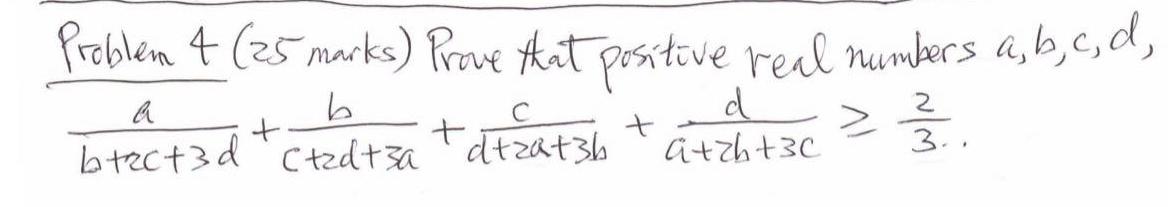 Problem 4 (25 marks) Prove that positive real numbers a, b, c, d,
a/(b+2c+3d) + b/(c+2d+3a) + c/(d+2a+3b) + d/(a+2b+3c) ≥ 2/3..